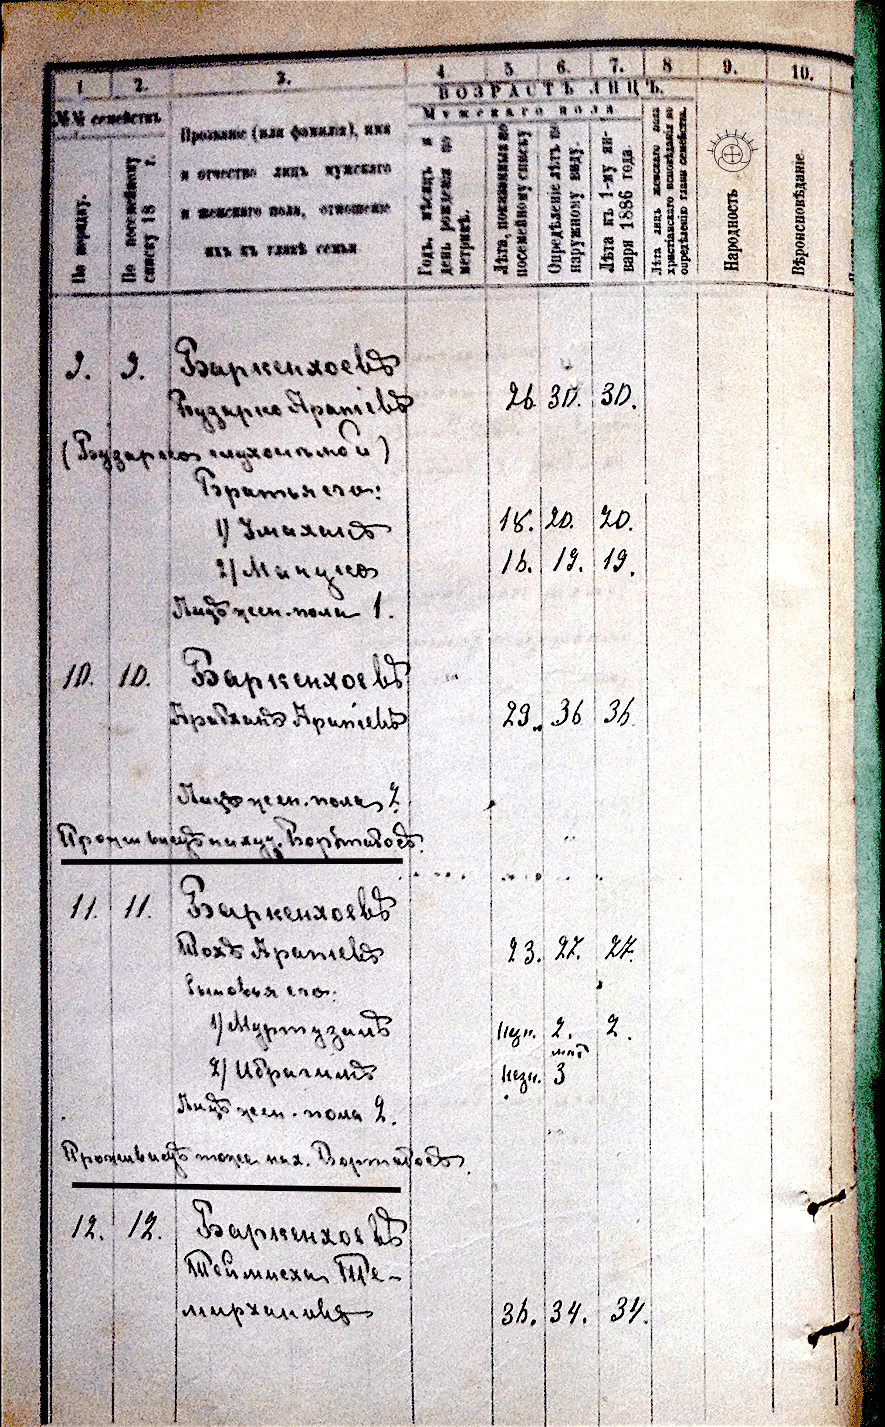 1 2. 3. 4 5. 6. 7. 8 9. 10.
ВОЗРАСТЪ ЛИЦЪ.
Мужскаго пола
№№ семействъ
По порядку.
По посемейному списку 18 г.
Прозваніе (или фамилія), имя
и отчество лицъ мужскаго
и женскаго пола, отношеніе
ихъ къ главѣ семьи
Годъ, мѣсяцъ и день рожденія по метрикѣ.
Лѣта, показанныя по посемейному списку
Опредѣленіе лѣтъ по наружному виду.
Лѣта къ 1-му января 1886 года.
Лѣта лицъ женскаго пола христіанскаго исповѣданія по опредѣленію главы семейства.
Народность
Вѣроисповѣданіе
9. 9. Баркенхоевъ
Бузарко Арапіевъ 26 30. 30.
(Бузарко глухонѣмой)
Братья его:
1) Умаханъ 18. 20. 20.
2) Мануко 16. 19. 19.
Лицъ жен. пола 1.
10. 10. Баркенхоевъ
Арабханъ Арапіевъ 29 36 36.
Лицъ жен. пола 2.
Проживаетъ на хут.
11. 11. Баркенхоевъ
Тохъ Арапіевъ 23. 27. 27.
Сыновья его:
1) Муртузалъ незн. 2. 2.
2) Ибрагимъ незн. 3
Лицъ жен. пола 2.
Проживаетъ тоже на х.
12. 12. Баркенхоевъ
Теймисха Те-
мирхановъ 36. 34. 34.